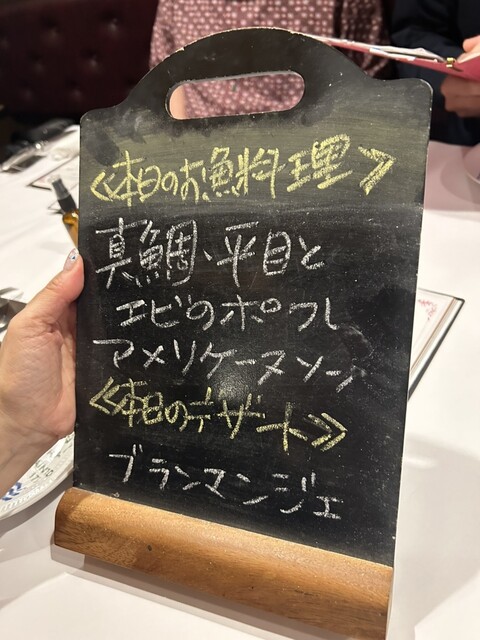 《本日のお魚料理》
真鯛、平目と
エビのポワレ
アメリケーヌソース
《本日のデザート》
ブランマンジェ